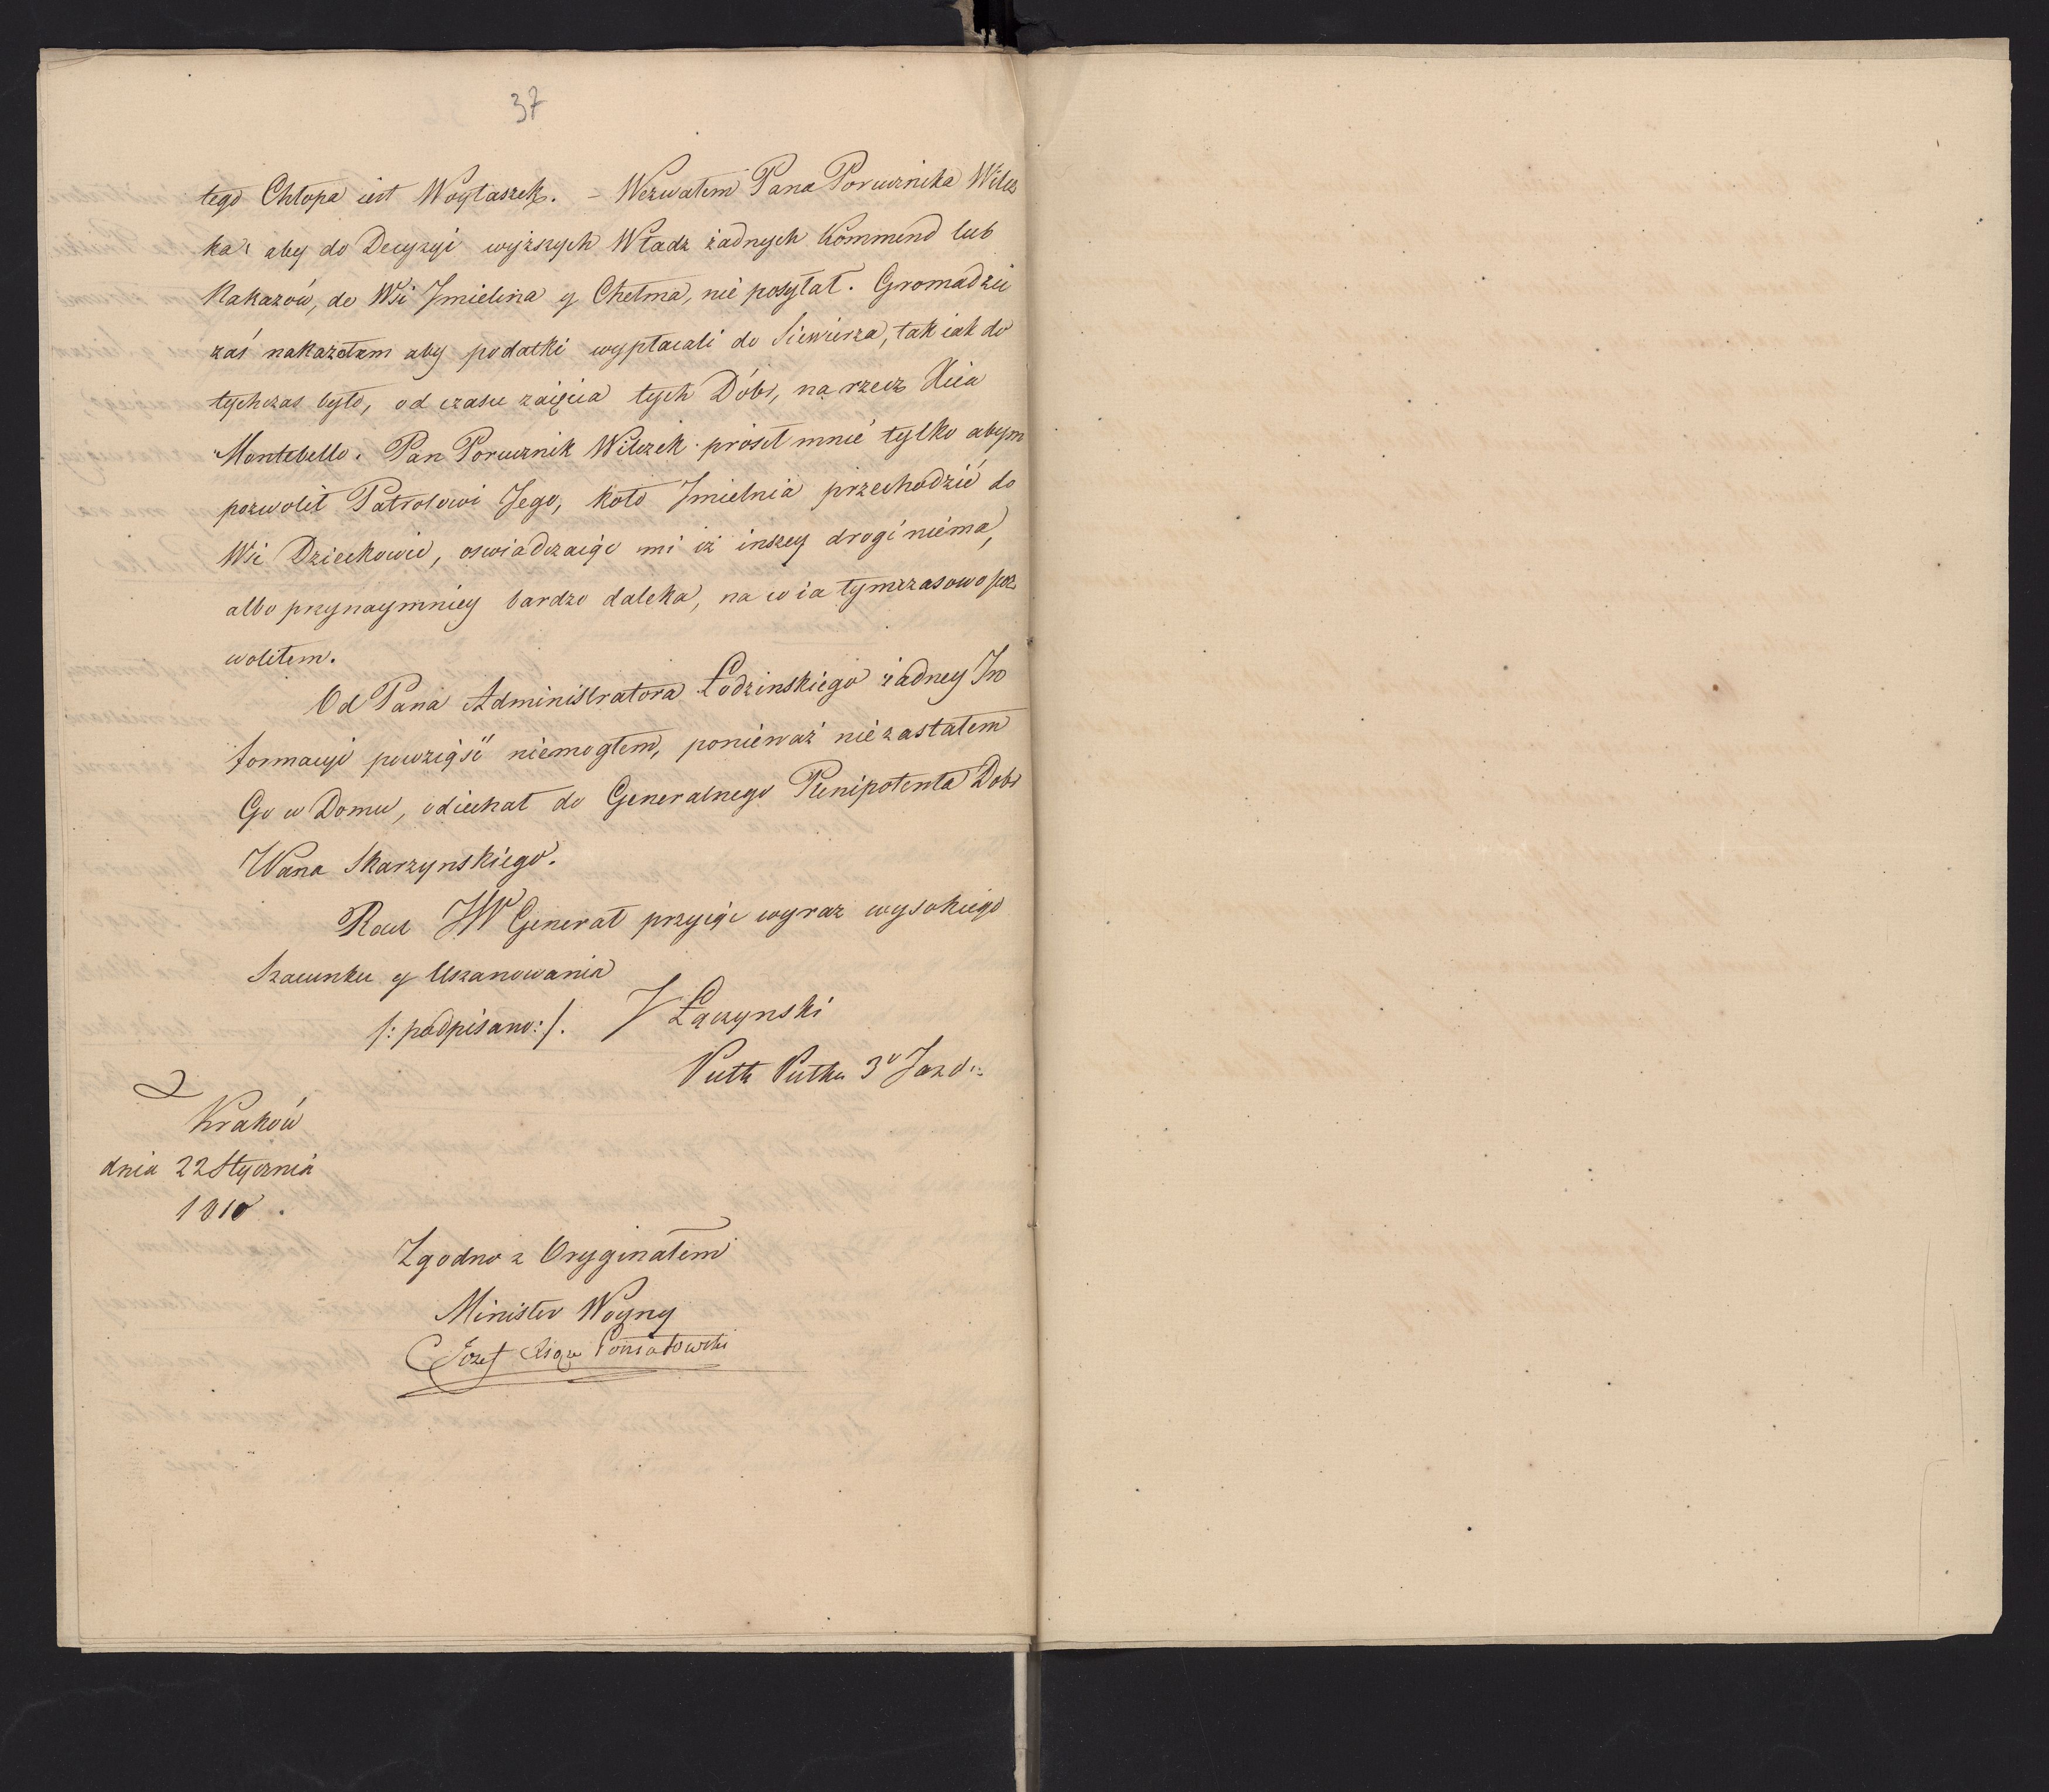 37
tego Chłopa iest Woytaszek. – Wezwałem Pana Porucznika Wilcz
ka, aby do Decyzyi wyższych Władz żadnych Kommend lub
Nakazów, do Wsi Jmielina y Chełma, nie posyłał. Gromadzie
zaś nakazałem aby podatki wypłacali do Siewierza, tak iak do
tychczas było, od czasu zaięcia tych Dóbr, na rzecz Xcia
Montebello. Pan Porucznik Wilczek prosił mnie tylko abym
pozwolił Patrolowi Jego, koło Jmielnia przechodzić do
Wsi Dzieckowic, oswiadczaiąc mi iż inszey drogi niema,
albo przynaymniey bardzo daleka, na co ia tymczasowo poz
woliłem.
Od Pana Administratora Łodzinskiego żadney In
formacyi powziąść niemogłem, ponieważ nie zastałem
Go w Domu, odiechał do Generalnego Plenipotenta Dobr
JWana Skarzynskiego.
Racz JW Generał przyiąć wyraz wysokiego
Szacunku y Uszanowania
/: podpisano: /. J Łączynski
Pułk Pułku 3° Jazd:
Kraków
dnia 22 Stycznia
1810.
Zgodno z Oryginałem
Minister Woyny
Józef Xiąże Poniatowski